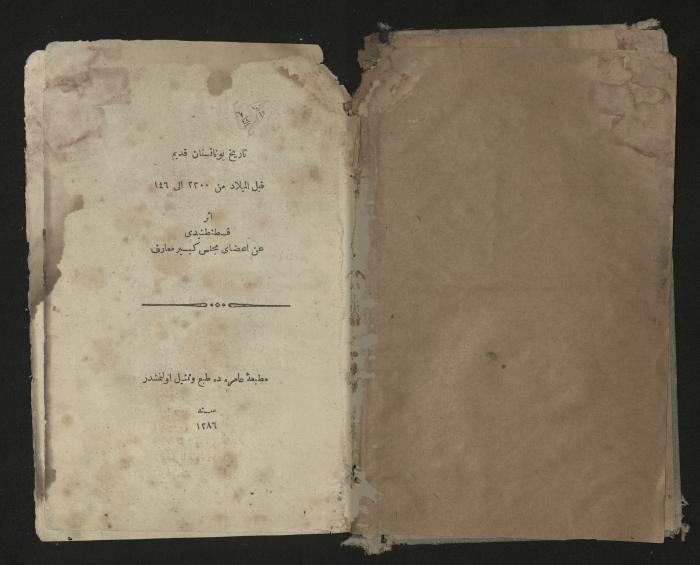 تاریخ یونانستان قدیم
قبل المیلاد من ٢٢٠٠ الی ١٤٦
اثر
قسطنطنیدی
عن اعضای مجلس کبیر معارف
مطبعۀ عامره ده طبع وتمثیل اولنمشدر
سنه
١٢٨٦